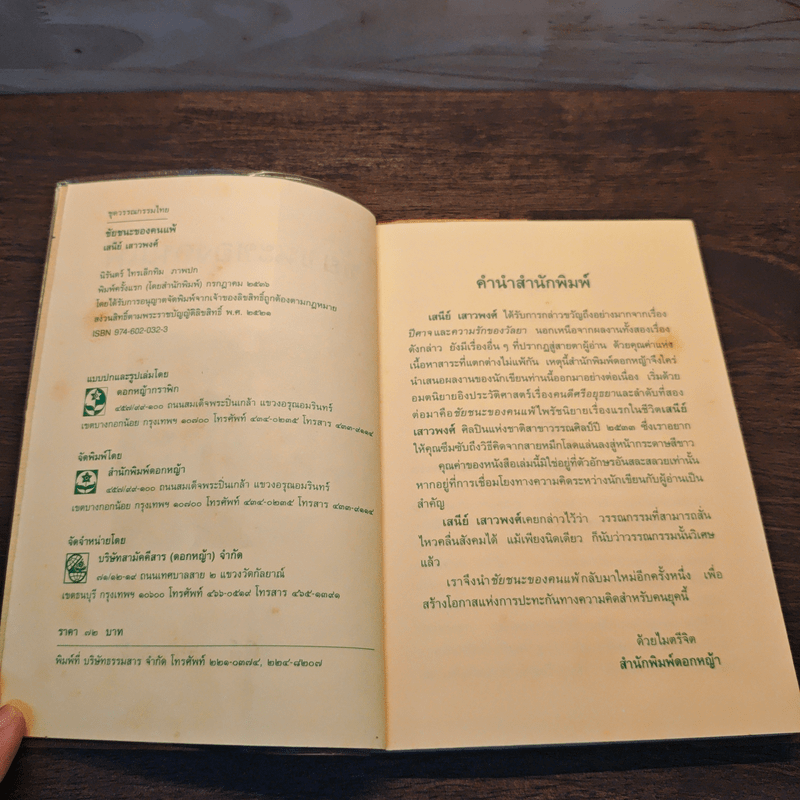 ชุดวรรณกรรมไทย
ชัยชนะของคนแพ้
เสนีย์ เสาวพงศ์
นิรันดร์ ไทรเล็กทิม ภาพปก
พิมพ์ครั้งแรก (โดยสำนักพิมพ์) กรกฎาคม ๒๕๓๖
โดยได้รับการอนุญาตจัดพิมพ์จากเจ้าของลิขสิทธิ์ถูกต้องตามกฎหมาย
สงวนสิทธิ์ตามพระราชบัญญัติลิขสิทธิ์ พ.ศ. ๒๕๒๑
ISBN 974-602-032-3
แบบปกและรูปเล่มโดย
ดอกหญ้ากราฟิก
๔๕๗/๙๙-๑๐๐ ถนนสมเด็จพระปิ่นเกล้า แขวงอรุณอมรินทร์
เขตบางกอกน้อย กรุงเทพฯ ๑๐๗๐๐ โทรศัพท์ ๔๓๔-๐๒๓๕ โทรสาร ๔๓๓-๙๑๑๔
จัดพิมพ์โดย
สำนักพิมพ์ดอกหญ้า
๔๕๗/๙๙-๑๐๐ ถนนสมเด็จพระปิ่นเกล้า แขวงอรุณอมรินทร์
เขตบางกอกน้อย กรุงเทพฯ ๑๐๗๐๐ โทรศัพท์ ๔๓๔-๐๒๓๕ โทรสาร ๔๓๓-๙๑๑๔
จัดจำหน่ายโดย
บริษัทสามัคคีสาร (ดอกหญ้า) จำกัด
๗๑/๑๒-๑๙ ถนนเทศบาลสาย ๒ แขวงวัดกัลยาณ์
เขตธนบุรี กรุงเทพฯ ๑๐๖๐๐ โทรศัพท์ ๔๖๖-๐๕๑๙ โทรสาร ๔๖๕-๑๓๙๑
ราคา ๗๒ บาท
พิมพ์ที่ บริษัทธรรมสาร จำกัด โทรศัพท์ ๒๒๑-๐๓๗๔, ๒๒๔-๘๒๐๗
คำนำสำนักพิมพ์
เสนีย์ เสาวพงศ์ ได้รับการกล่าวขวัญถึงอย่างมากจากเรื่อง
ปีศาจ และความรักของวัลยา นอกเหนือจากผลงานทั้งสองเรื่อง
ดังกล่าว ยังมีเรื่องอื่น ๆ ที่ปรากฏสู่สายตาผู้อ่าน ด้วยคุณค่าแห่ง
เนื้อหาสาระที่แตกต่างไม่แพ้กัน เหตุนี้สำนักพิมพ์ดอกหญ้าจึงใคร่
นำเสนอผลงานของนักเขียนท่านนี้ออกมาอย่างต่อเนื่อง เริ่มด้วย
อมตนิยายอิงประวัติศาสตร์เรื่องคนดีศรีอยุธยาและลำดับที่สอง
ต่อมาคือชัยชนะของคนแพ้ไพรัชนิยายเรื่องแรกในชีวิตเสนีย์
เสาวพงศ์ ศิลปินแห่งชาติสาขาวรรณศิลป์ปี ๒๕๓๓ ซึ่งเราอยาก
ให้คุณซึมซับถึงวิธีคิดจากสายหมึกโลดแล่นลงสู่หน้ากระดาษสีขาว
คุณค่าของหนังสือเล่มนี้มิใช่อยู่ที่ตัวอักษรอันสละสลวยเท่านั้น
หากอยู่ที่การเชื่อมโยงทางความคิดระหว่างนักเขียนกับผู้อ่านเป็น
สำคัญ
เสนีย์ เสาวพงศ์เคยกล่าวไว้ว่า วรรณกรรมที่สามารถสั่น
ไหวคลื่นสังคมได้ แม้เพียงนิดเดียว ก็นับว่าวรรณกรรมนั้นวิเศษ
แล้ว
เราจึงนำชัยชนะของคนแพ้กลับมาใหม่อีกครั้งหนึ่ง เพื่อ
สร้างโอกาสแห่งการปะทะกันทางความคิดสำหรับคนยุคนี้
ด้วยไมตรีจิต
สำนักพิมพ์ดอกหญ้า